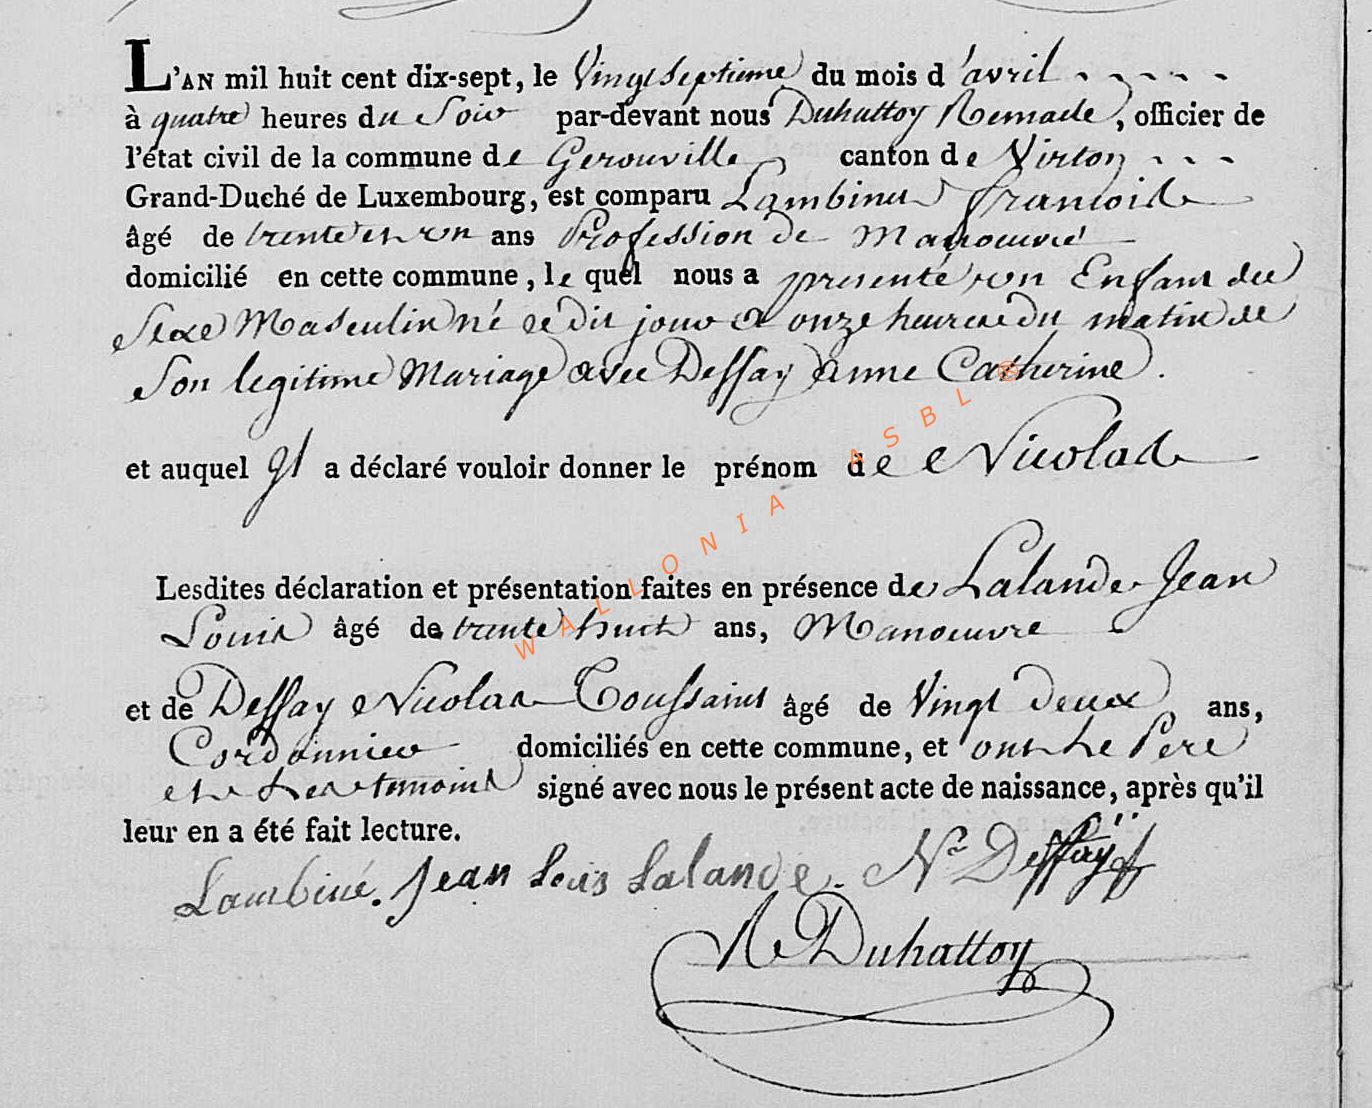 L'AN mil huit cent dix-sept, le Vingt Septieme du mois d'avril
à quatre heures du Soir par-devant nous Duhattoy Remacle, officier de
l'état civil de la commune de Gerouville canton de Virton
Grand-Duché de Luxembourg, est comparu Lambinet francois
âgé de trente et un ans Profession de Manoeuvre
domicilié en cette commune, le quel nous a presenté un Enfant du
Sexe Masculin né ce dit jour a onze heures du matin de
Son legitime Mariage avec Dessay anne Catherine.
et auquel il a déclaré vouloir donner le prénom de Nicolas
Lesdites déclaration et présentation faites en présence de Lalande Jean
Louis âgé de trente huit ans, Manoeuvre
et de Dessay Nicolas Toussaint âgé de Vingt deux ans,
Cordonnier domiciliés en cette commune, et ont Le Pere
et Les temoins signé avec nous le présent acte de naissance, après qu'il
leur en a été fait lecture.
Lambiné. Jean Louis Lalande. Ns Dessaÿ
R Duhattoy
WALLONIA ASBL ®